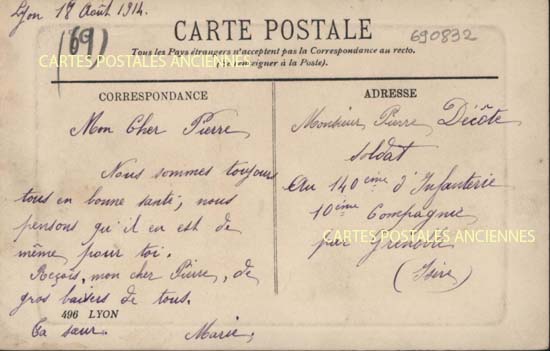 Lyon 18 Août 1914.
(69)
690832
CARTE POSTALE
Tous les Pays étrangers n'acceptent pas la Correspondance au recto.
(Se renseigner à la Poste).
CARTES POSTALES ANCIENNES
CORRESPONDANCE
Mon Cher Pierre,
Nous sommes toujours
tous en bonne santé, nous
pensons qu'il en est de
même pour toi.
Reçois, mon cher Pierre, de
gros baisers de tous.
496 LYON
Ta sœur. Marie.
ADRESSE
Monsieur Pierre Décôte
soldat
Au 140ème d'Infanterie
10ème Compagnie
par Grenoble
CARTES POSTALES ANCIENNES
(Isère)